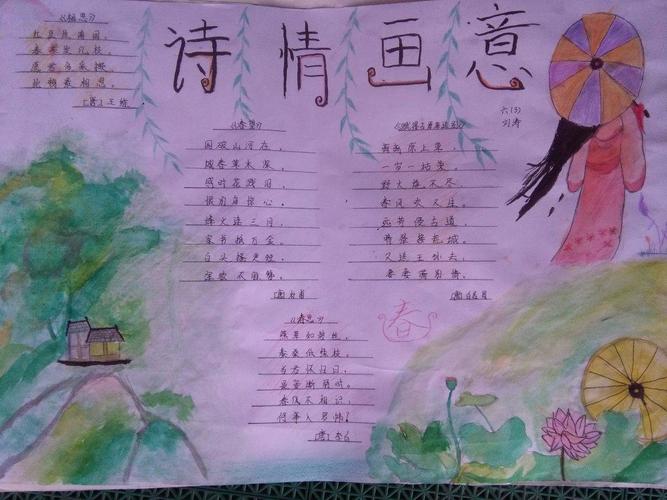 诗情画意
六(3)
刘涛
《相思》
红豆生南国,
春来发几枝。
愿君多采撷,
此物最相思。
[唐]王维
《春望》
国破山河在,
城春草木深。
感时花溅泪,
恨别鸟惊心。
烽火连三月,
家书抵万金。
白头搔更短,
浑欲不胜簪。
[唐]杜甫
《赋得古原草送别》
离离原上草,
一岁一枯荣。
野火烧不尽,
春风吹又生。
远芳侵古道,
晴翠接荒城。
又送王孙去,
萋萋满别情。
[唐]白居易
《春思》
燕草如碧丝,
秦桑低绿枝。
当君怀归日,
是妾断肠时。
春风不相识,
何事入罗帏?
[唐]李白
春